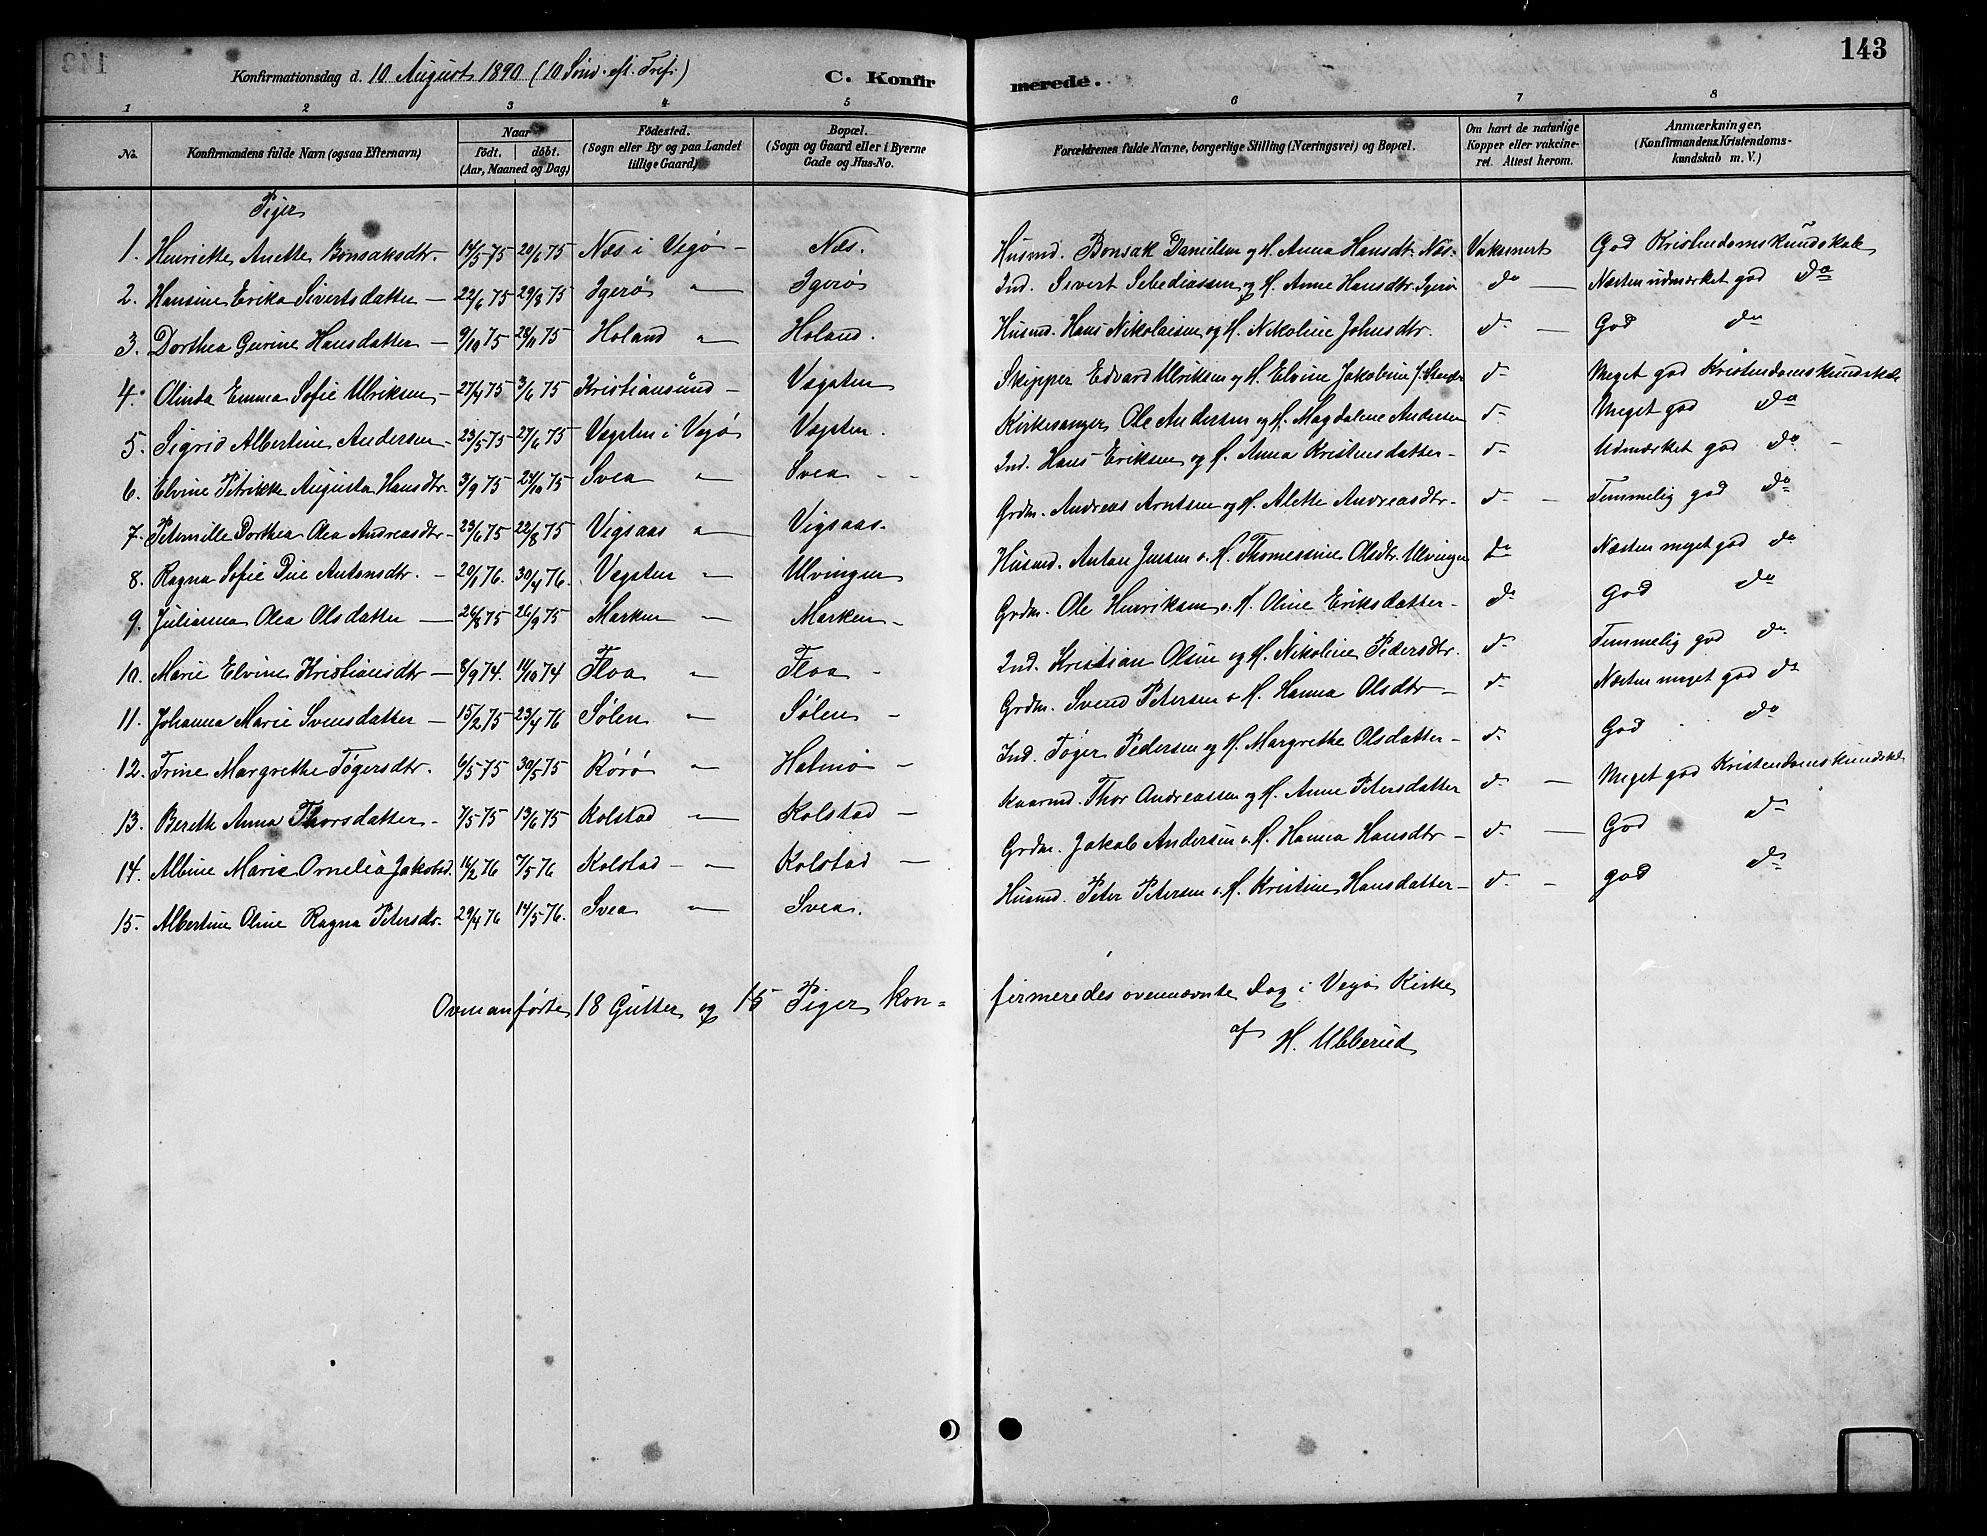 143
Konfirmationsdag d. 10 August 1890 (10 Sönd. eft. Tref.) C. Konfirmerede.
1 2 3 4 5 6 7 8
No. Konfirmandens fulde Navn (ogsaa Efternavn) Naar födt. döbt. (Aar, Maaned og Dag) Födested. (Sogn eller By og paa Landet tillige Gaard) Bopæl. (Sogn og Gaard eller i Byerne Gade og Hus-No. Forældrenes fulde Navne, borgerlige Stilling (Næringsvei) og Bopæl. Om havt de naturlige Kopper eller vakcineret. Attest herom. Anmærkninger. (Konfirmandens Kristendomskundskab m. V.)
Piger
1. Henriette Anette Bonsaksdtr. 14/5 75 20/6 75 Næs i Vegø — Næs. Husmd. Bonsak Danielsen og H. Anna Hansdtr. Næs. Vaksinert God Kristendomskundskab
2. Hansine Erika Sivertsdatter — 22/6 75 29/8 75 Igerø " Igerø Ind. Sivert Sebediassen og H. Anne Hansdtr. Igerø do — Næsten udmærket god do
3. Dorthea Gurine Hansdatter — 9/10 75 28/11 75 Holand " Holand. Husmd. Hans Nikolaisen og H. Nikoline Johnsdtr. do — God do
4. Olinda Emma Sofie Ulriksen — 27/4 75 3/6 75 Kristiansund — Vægsten Skipper Edvard Ulriksen og H. Elvine Jakobine f. do Meget god Kristendomskundskab
5. Sigrid Albertine Andersen — 23/5 75 27/6 75 Vægsten i Vegø Vægsten. Kirkesanger Ole Andersen og H. Magdalene Andersen do Meget god do
6. Elvine Petrikke Augusta Hansdtr. 3/9 75 24/10 75 Svea " Svea — Ind. Hans Eriksen og H. Anna Kristensdatter — do Udmærket god do —
7. Peternille Dorthea Olea Andreasdtr — 23/6 75 22/8 75 Vigsaas " Vigsaas. Grdm. Andreas Arntsen og H. Alette Andreasdtr — do — Temmelig god do
8. Ragna Sofie Die Antonsdtr. — 20/1 76. 30/4 76. Vægsten " Ulvingen Husmd. Anton Jensen o. H. Thomessine Olsdtr. Ulvingen do Næsten meget god do
9. Julianna Olea Olsdatter — 26/8 75 26/9 75 Marken " Marken — Grdm. Ole Henriksen o. H. Oline Eriksdatter — do God do
10. Marie Elvine Kristiansdtr — 8/9 74. 11/10 74 Floa " Floa — Ind. Kristian Olsen og H. Nikoline Pedersdtr. do Temmelig god do
11. Johanna Marie Svensdatter — 15/2 75 23/4 76 Sølen " Sølen — Grdm. Svend Petersen o. H. Hanna Olsdtr — do Næsten meget god do
12. Trine Margrethe Tøgersdtr. 6/5 75 30/5 75 Rørø " Halmø — Ind. Tøger Pedersen og H. Margrethe Olsdatter — do God do
13. Bereth Anna Thorsdatter — 7/5 75 13/6 75 Kolstad " Kolstad — Kaarmd. Thor Andreassen og H. Anne Petersdatter do — Meget god Kristendomskundskab
14. Albine Marie Ornelia Jakobsd. 16/2 76 7/5 76 Kolstad — " Kolstad — Grdm. Jakob Andersen o. H. Hanna Hansdtr — do — God do
15. Albertine Oline Ragna Petersdtr. 29/4 76 14/5 76. Svea " Svea. Husmd. Peter Petersen o. H. Kristine Hansdatter — do — god do
Ovenanførte 18 Gutter og 15 Piger konfirmeredes ovennævnte Dag i Vegø Kirke
af H. Ubberud